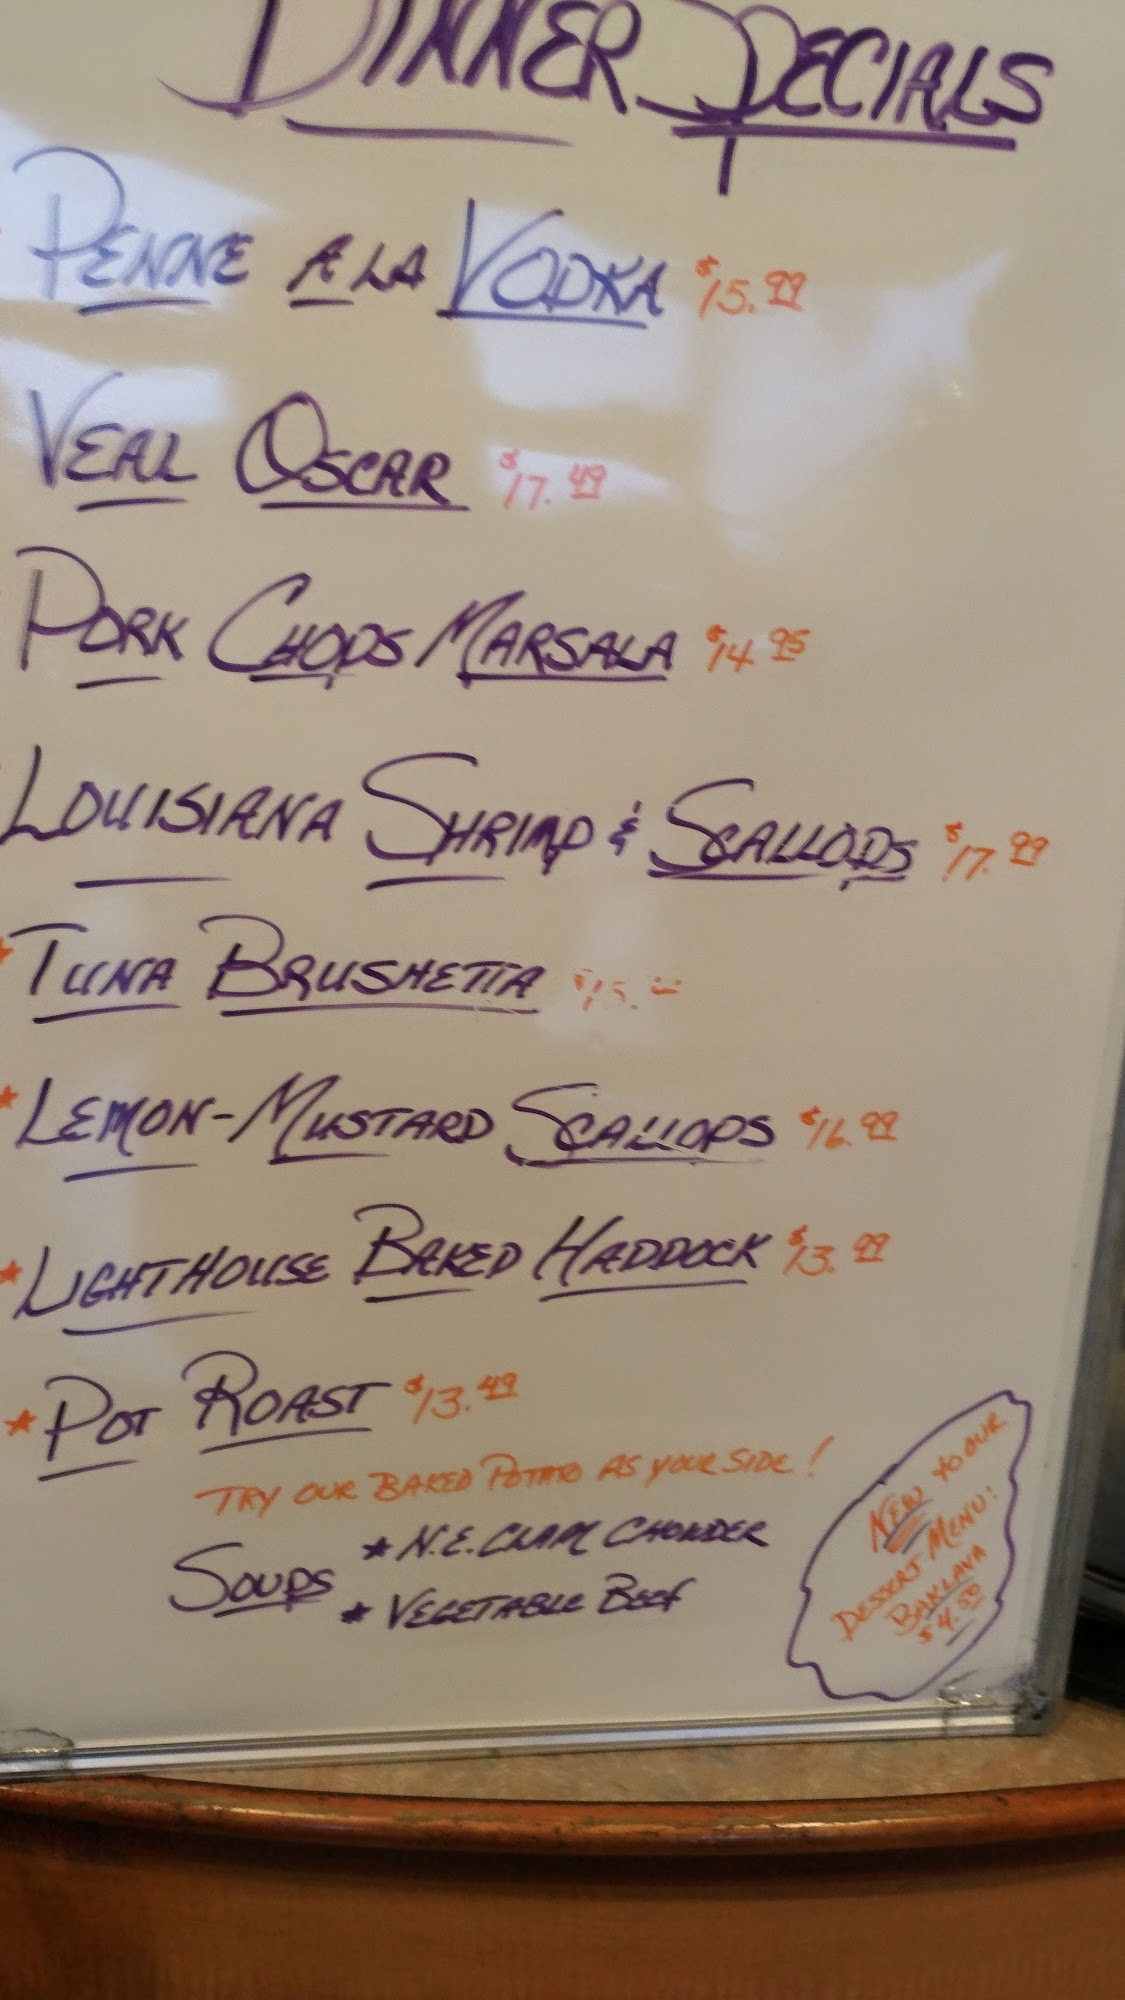 DINNER SPECIALS
PENNE A LA VODKA $15.99
VEAL OSCAR $17.49
PORK CHOPS MARSALA $14.95
LOUISIANA SHRIMP & SCALLOPS $17.99
* TUNA BRUSHETTA
* LEMON-MUSTARD SCALLOPS $16.99
* LIGHTHOUSE BAKED HADDOCK $13.99
* POT ROAST $13.49
TRY OUR BAKED POTATO AS YOUR SIDE!
SOUPS
* N.E. CLAM CHOWDER
* VEGETABLE BEEF
NEW TO OUR
DESSERT MENU:
BAKLAVA
$4.50